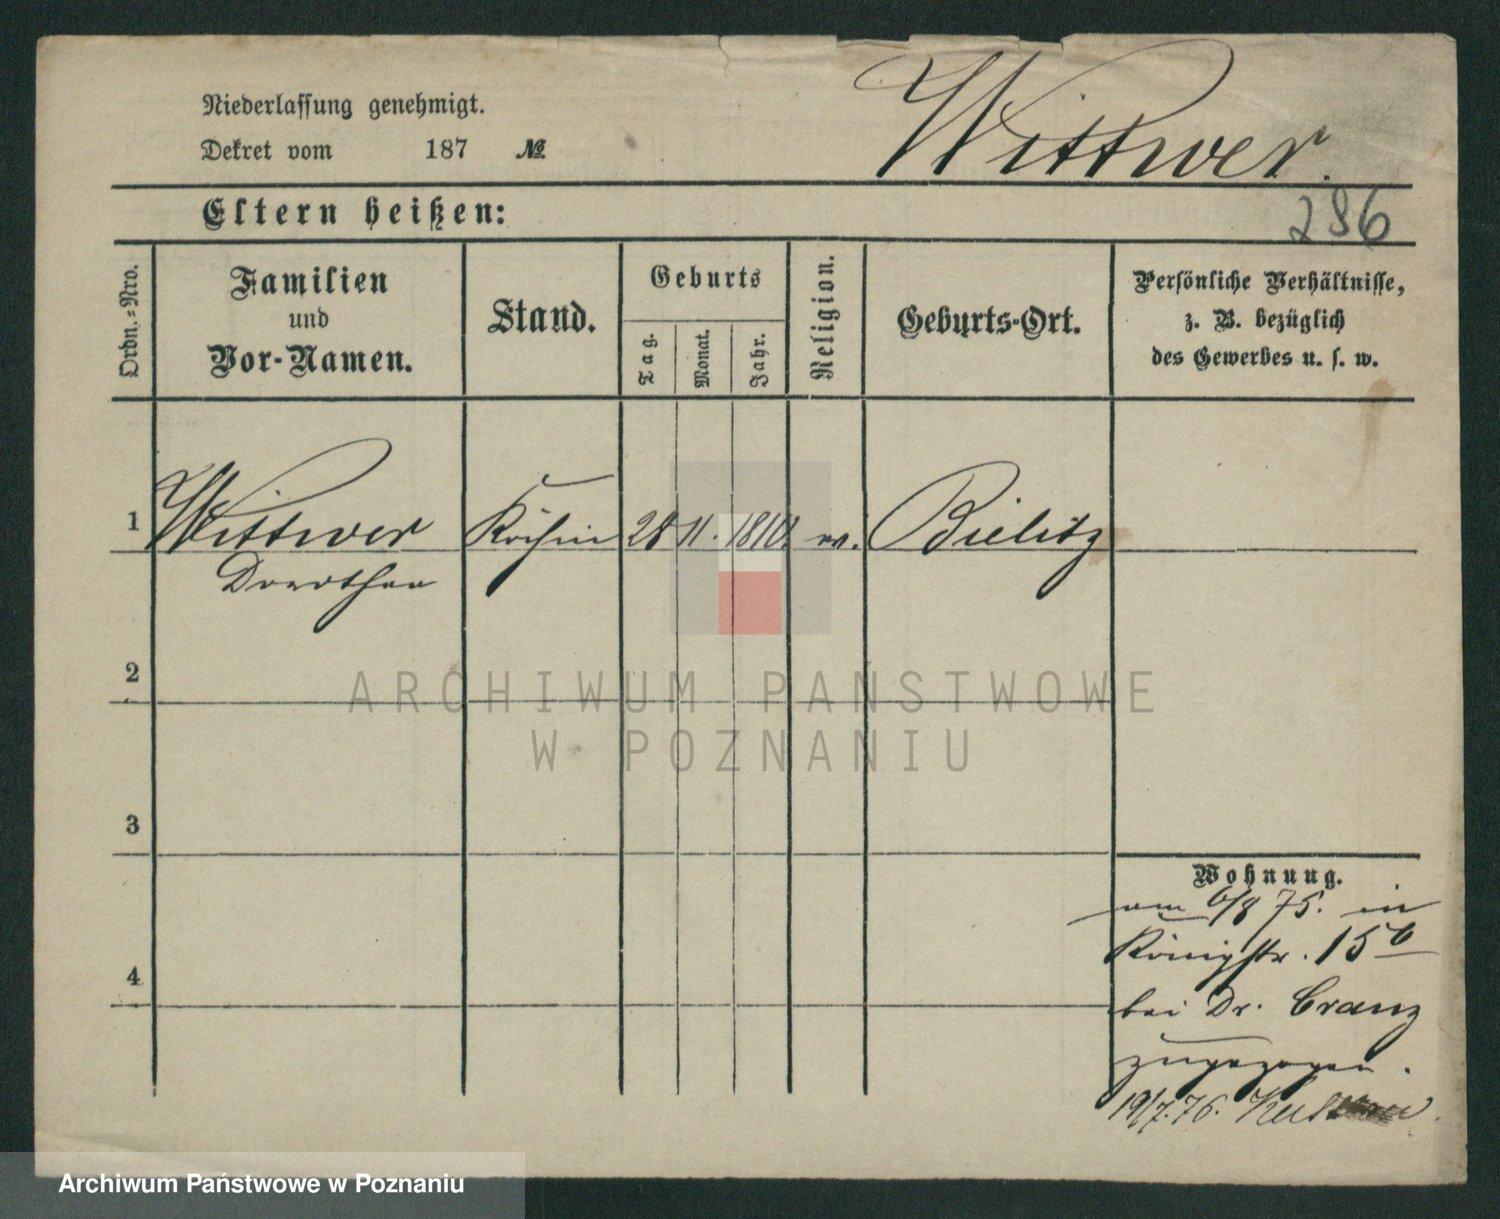 Niederlassung genehmigt.
Dekret vom 187 №
Wittwer.
286
Eltern heißen:
Ordn.=Nro.
Familien
und
Vor-Namen.
Stand.
Geburts
Tag.
Monat.
Jahr.
Religion.
Geburts-Ort.
Persönliche Verhältnisse,
z. B. bezüglich
des Gewerbes u. s. w.
1 Wittwer Köchin 28 11. 1810. ev. Bielitz
Dorothea
2
3
4
Wohnung.
am 6/8 75. in
Königstr. 15b
bei Dr. Cranz
zugezogen.
19/7.76.
ARCHIWUM PAŃSTWOWE
W POZNANIU
Archiwum Państwowe w Poznaniu